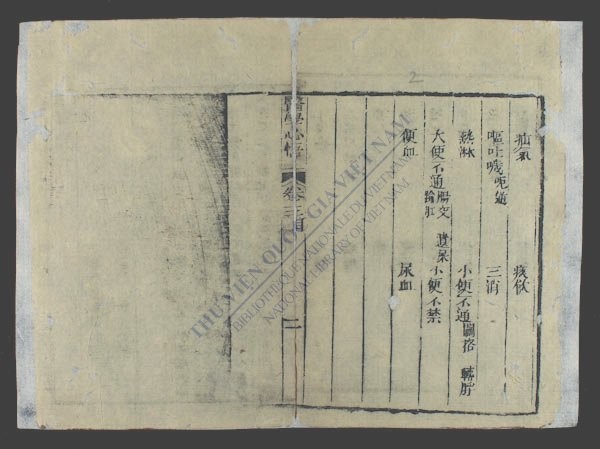 2
疝氣 痰飲
嘔吐噦呃逆 三消
熱淋 小便不通 關格 轉脬
大便不通 腸交 遺尿小便不禁
便血 尿血
醫學心悟 卷三目 二
THƯ VIỆN QUỐC GIA VIỆT NAM
BIBLIOTHÈQUE NATIONALE DU VIETNAM
NATIONAL LIBRARY OF VIETNAM